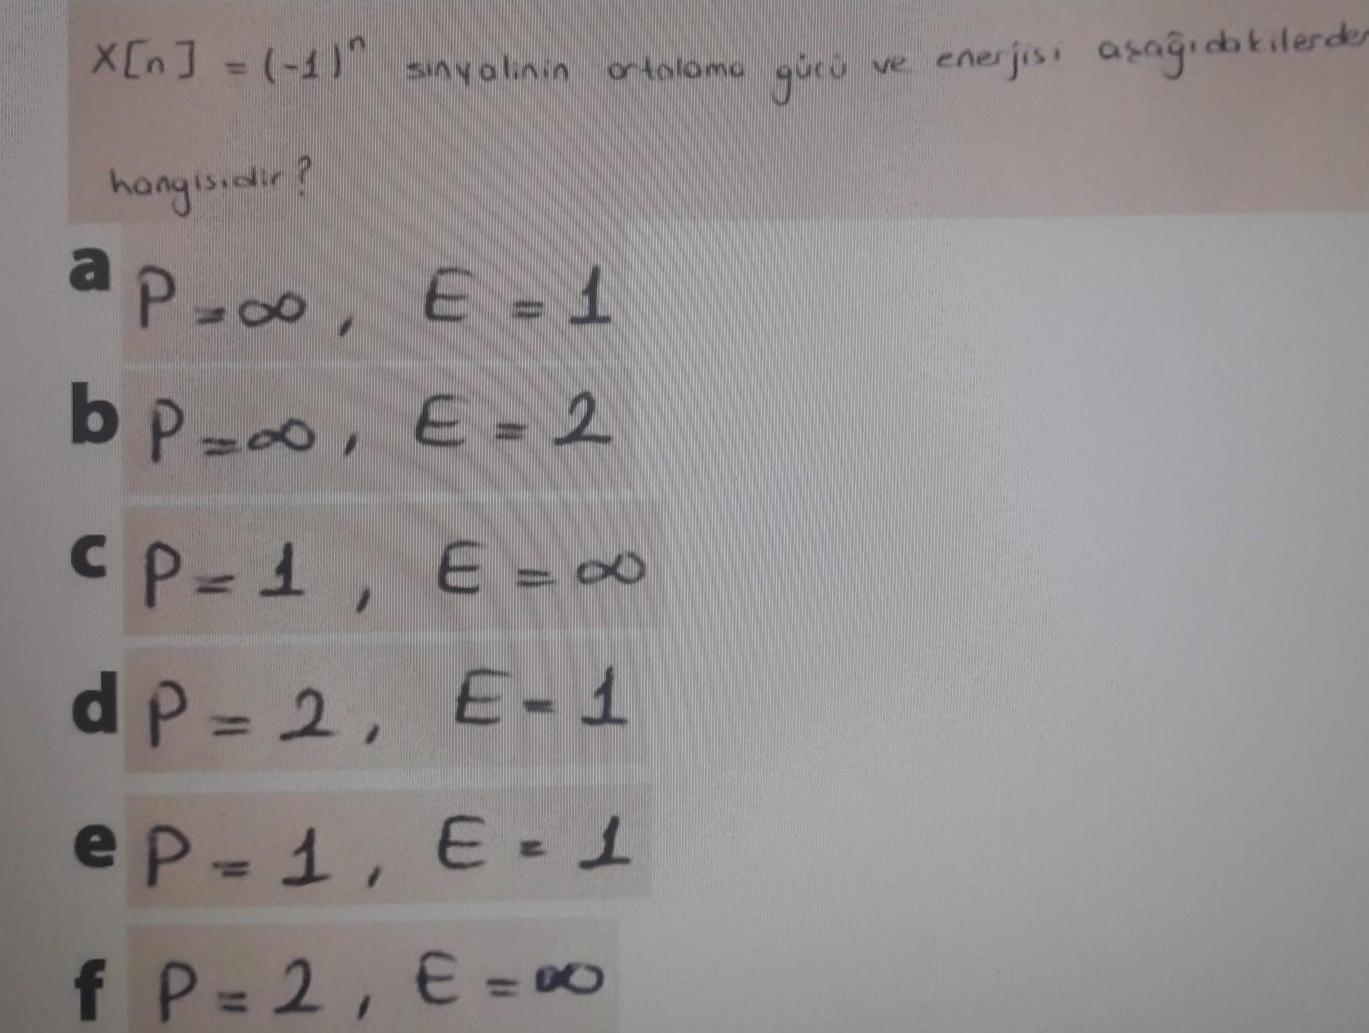 X[n] = (-1)ⁿ sinyalinin ortalama gücü ve enerjisi aşağıdakilerden
hangisidir?
a P = ∞, E = 1
b P = ∞, E = 2
c P = 1, E = ∞
d P = 2, E = 1
e P = 1, E = 1
f P = 2, E = ∞